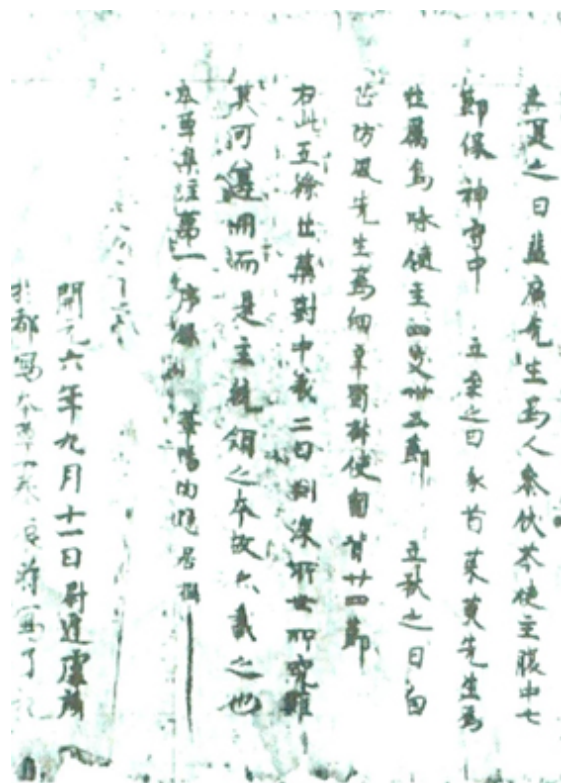 立夏之日蜚廉先生爲人參伏苓使主腹中七
節保神守中　之日豕首茱萸先生爲
牡厲烏喙使主四支卅二節　立秋之日白
芷防風先生爲細辛蜀椒使匈背廿四節
右此五條出藥對中義旨淵深非世所究雖
莫可遵用而是主統領之本故亦載之也
本草集注第一序錄　華陽陶隱居撰
開元六年九月十一日尉遲盧麟
於都寫本草一卷辰時寫了記